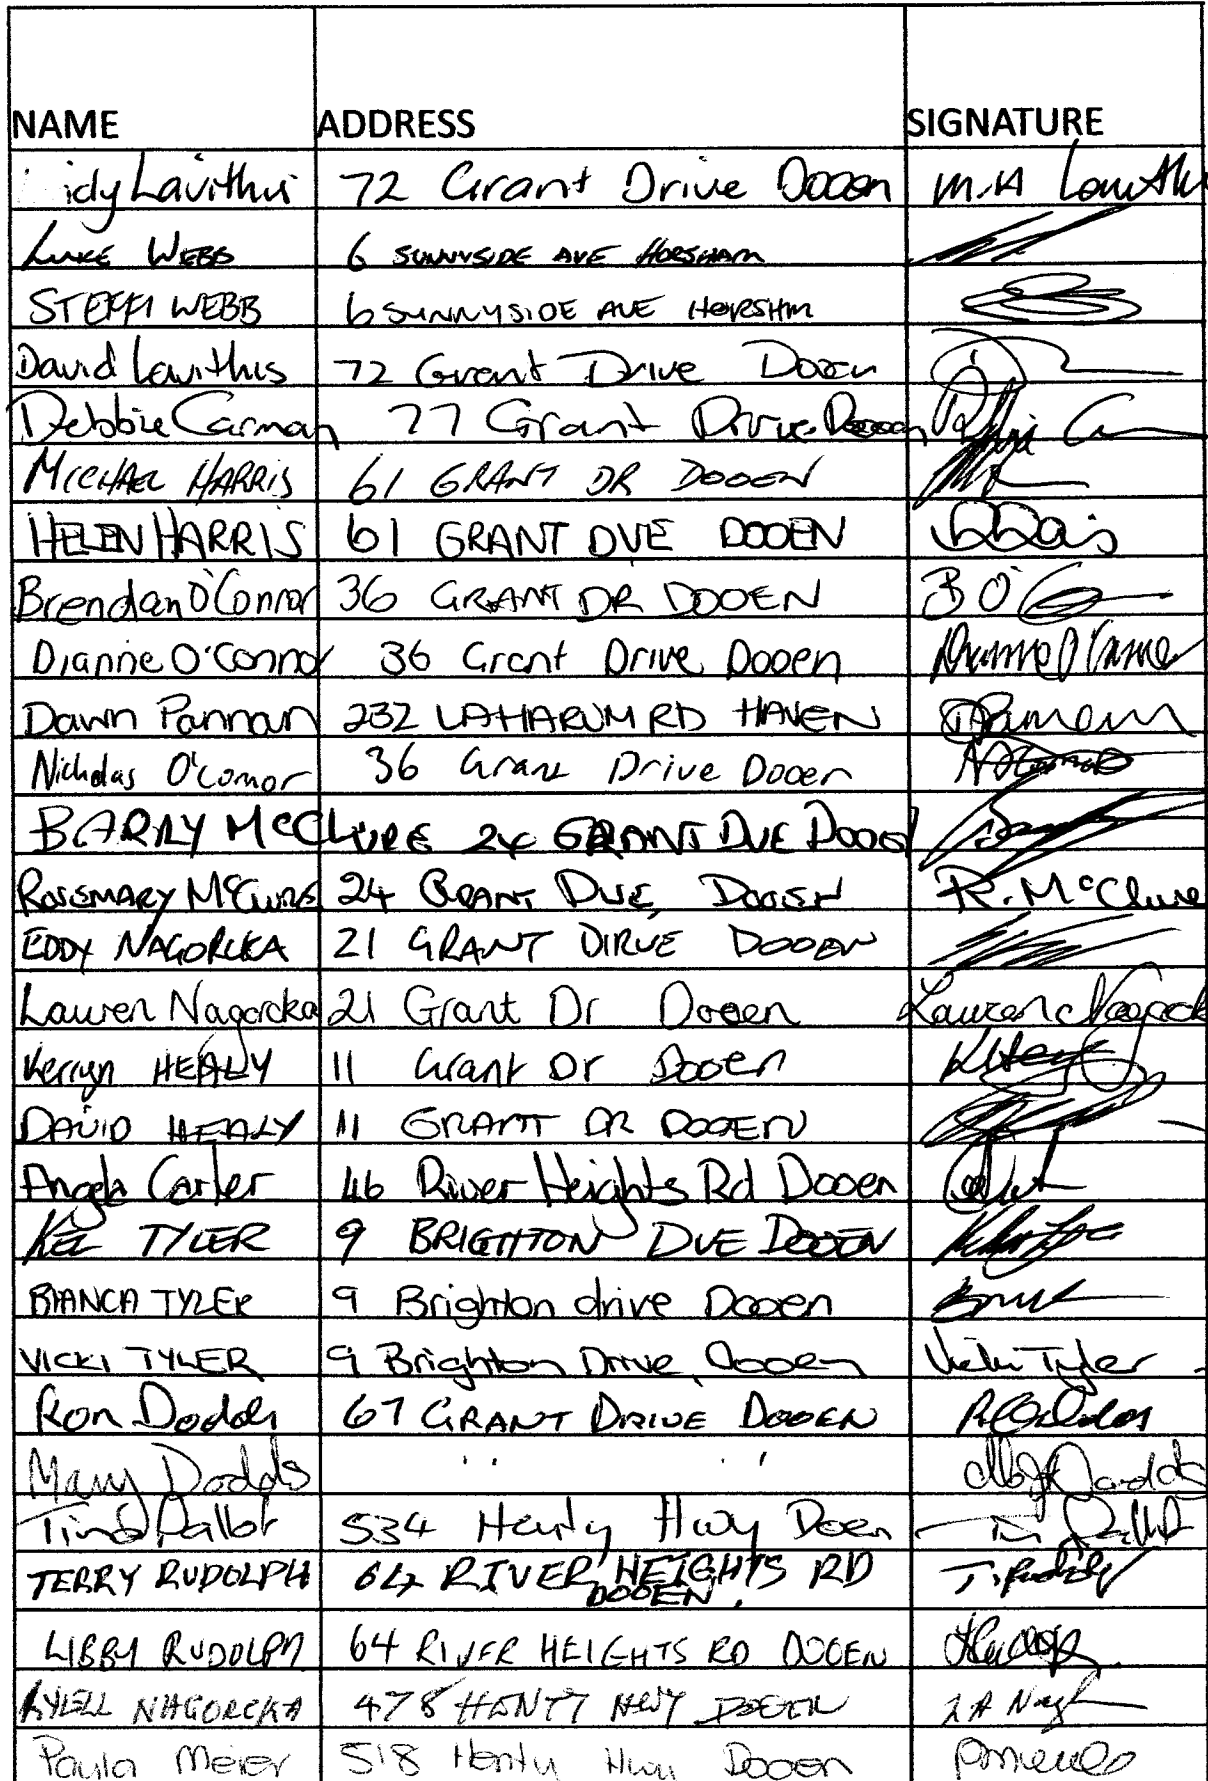 NAME ADDRESS SIGNATURE
idy Lavithis 72 Grant Drive Dooen M.A Lawithis
LUKE WEBB 6 SUNNYSIDE AVE HORSHAM
STEFFI WEBB 6 SUNNYSIDE AVE HORSHM
David Lawithis 72 Grant Drive Dooen
Debbie Carman 77 Grant Drive Dooen
MICHAEL HARRIS 61 GRANT DR DOOEN
HELEN HARRIS 61 GRANT DVE DOOEN
Brendan O'Connor 36 GRANT DR DOOEN B O'C
Dianne O'Connor 36 Grant Drive Dooen Dianne O'Connor
Dawn Pannan 232 LAHARUM RD HAVEN DPannan
Nicholas O'Connor 36 Grant Drive Dooen
BARRY McCLURE 24 GRANT DVE DOOEN
ROSEMARY McCLURE 24 GRANT DVE, DOOEN R. McClure
EDDY NAGORCKA 21 GRANT DIRVE DOOEN
Lauren Nagorcka 21 Grant Dr Dooen Lauren Nagorck
Kerryn HEALY 11 Grant Dr Dooen
DAVID HEALY 11 GRANT DR DOOEN
Angela Carter 46 River Heights Rd Dooen
KEL TYLER 9 BRIGHTON DVE DOOEN
BIANCA TYLER 9 Brighton drive Dooen
VICKI TYLER 9 Brighton Drive, Dooen Vicki Tyler
Ron Dodds 67 GRANT DRIVE DOOEN
Mary Dodds " " Dodds
Tina Pallot 534 Henty Hwy Dooen
TERRY RUDOLPH 64 RIVER HEIGHTS RD T. Rudolph
DOOEN.
LIBBY RUDOLPH 64 RIVER HEIGHTS RD DOOEN
RYLELL NAGORCKA 478 HENTY HWY DOOEN
Paula Meier 518 Henty Hwy Dooen